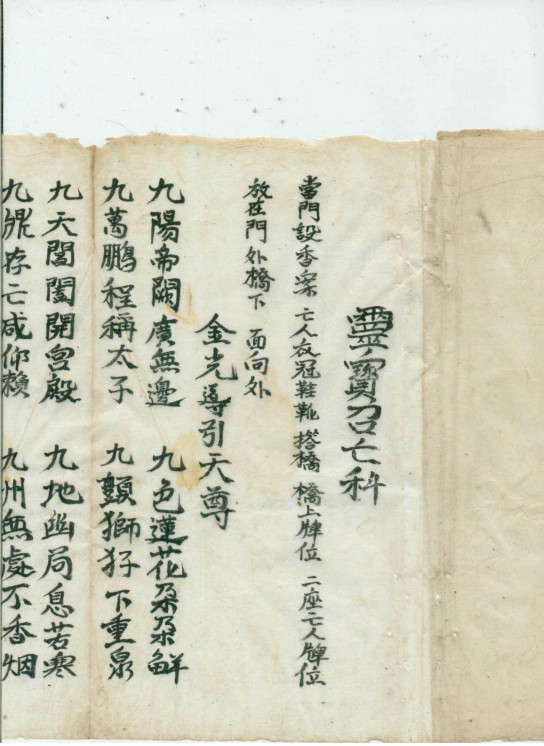 靈寶召亡科
當門設香案 亡人衣冠鞋靴 搭橋 橋上牌位 二座亡人牌位
放在門外橋下 面向外
金光導引天尊
九陽帝闕廣無邊 九色蓮花朶朶鮮
九萬鵬程稱太子 九頭獅犼下重泉
九天閶闔開宮殿 九地幽局息苦寒
九鼎存亡咸仰賴 九州無處不香烟